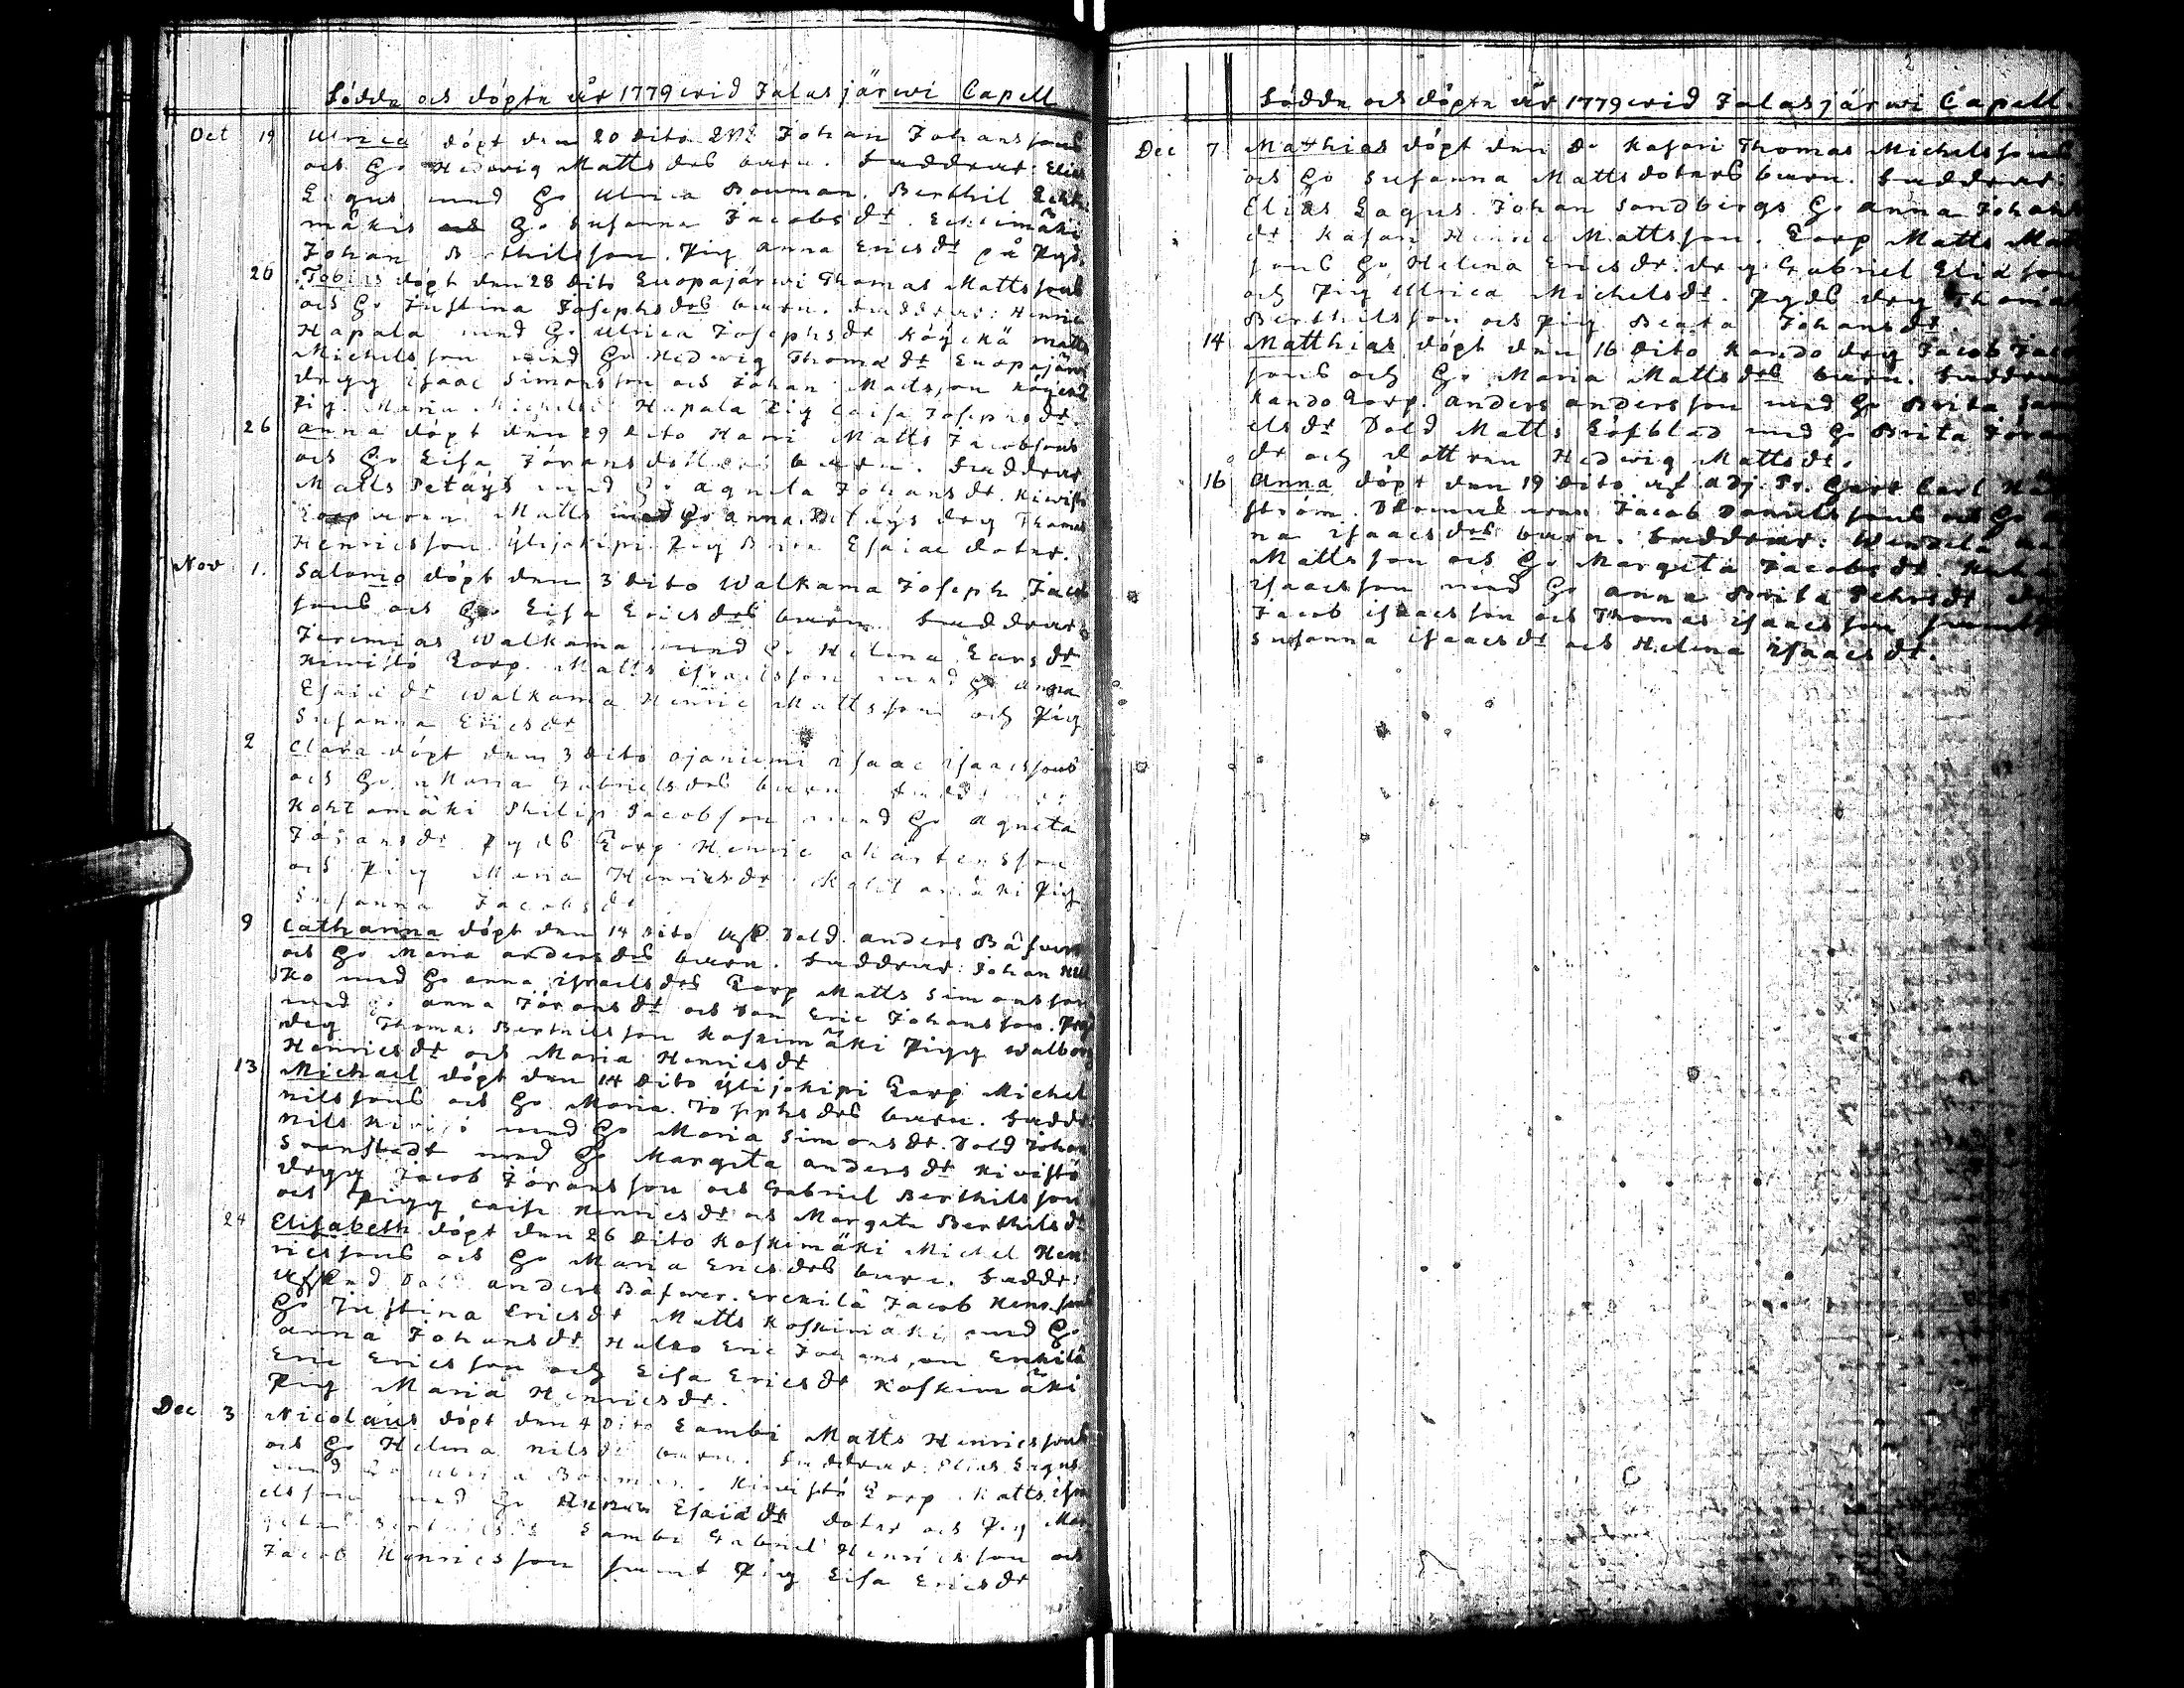 Födda och döpta år 1779 wid Jalasjärwi Capell
Oct 19 Ulrica döpt den 20 dito Johan Johanssons
och Ho Hedvig Matts drs barn. Faddrar: Elias
Lagus med Ho Ulrica Bouman. Berthil
mäkis och Ho Susanna Jacobs dr.
Johan Berthilsson. Pig Anna Erics dr på
26 Tobias döpt den 28 dito Luopajärwi Thomas Mattssons
och Ho Justina Josephs drs barn. Faddrar: Henric
Hapala med Ho Ulrica Josephs dr Köykä Matts
Michelsson med Ho Hedvig Thomæ dr Luopajärwi
drgg Isaac Simonsson och Johan Mattsson
Pig. Maria Hapala Pig Caisa Josephs dr.
26 Anna döpt den 29 dito Harri Matts Jacobssons
och Ho Lisa Jörans dotters barn. Faddrar
Matts Petäys med Ho Agneta Johans dr. Kiwistö
Torparen Matts med Ho Anna. Petäys drg Thomas
Henricsson. Ylijokipi Pig Brita Esaiæ doter.
Nov 1. Salomo döpt den 3 dito Walkama Joseph Jacob
sons och Ho Lisa Erics drs barn. Faddrar:
Jeremias Walkama med Ho Helena Lars dr
Kiwistö Torp. Matts Israelsson med Ho Anna
Esaiæ dr Walkama Henric Mattsson och Pig
Susanna Erics dr
2 Clara döpt den 3 dito Ojaniemi Isaac Isaacssons
och Ho Maria Gabriels drs barn
Kohtamäki Philip Jacobson med Ho Agneta
Johans dr Pyds Torp Henric Mårtensson
och Pig Maria Henrics dr. Kohtamäki Pig
Susanna Jacobs dr
9 Catharina döpt den 14 dito Afsk. Sold. Anders Bäfwer
och Ho Maria Anders drs barn. Faddrar: Johan Hul
ko med Ho Anna Israels drs Torp Matts Simonsson
med Ho Anna Jörans dr och son Eric Johansson.
drg Thomas Berthilsson Koskimäki Pigg Walborg
Henrics dr och Maria Henrics dr
13 Michael döpt den 14 dito Ylijokipi Torp Michel
Nilssons och Ho Maria Josephs drs barn. Faddr:
Nils Kiwistö med Ho Maria Simons dr. Sold Johan
Swanstedt med Ho Margeta Anders dr Kiwistö
drgg Jacob Jöransson och Gabriel Berthilsson
och Pigg Caisa Henrics dr och Margeta Berthils dr
24 Elisabeth döpt den 26 dito Koskimäki Michel Hen
ricssons och Ho Maria Erics drs barn. Faddr:
Afsked Sold Anders Bäfwer. Erckilä Jacob Henrsons
Ho Justina Erics dr Matts Koskimäki med Ho
Anna Johans dr Hulko Eric Johansson Erkilä
Eric Ericsson och Lisa Erics dr Koskimäki
Pig Maria Henrics dr.
Dec 3 Nicolaus döpt den 4 dito Lambi Matts Henricssons
och Ho Helena Nils dr barn. Faddrar: Elias Lagus
med Ho Ulrica Bouman. Kiwistö Torp. Matts Isra
elsson med Ho Anna Esaiæ dr doter och Pig Mar
geta Berthils dr Lambi Gabriel Henricsson och
Jacob Henricsson samt Pig Lisa Erics dr
2
Födda och döpta år 1779 wid Jalasjärwi Capell.
Dec 7 Mathias döpt den do Kasari Thomas Michelssons
och Ho Susanna Matts doters barn. Faddrar:
Elias Lagus. Johan Sandbergs Ho Anna Johans
dr. Kasari Henric Mattsson. Torp Matts Matt
sons Ho Helena Erics dr. drg Gabriel Eliæson
och Pig Ulrica Michels dr. Pyds drg Thomas
Berthilsson och Pig Beata Johans dr.
14 Matthias döpt den 16 dito Kando drg Jacob Jacob
sons och Ho Maria Matts drs barn. Faddrar
Kando Torp. Anders Andersson med Ho Brita Sam
els dr Sold Matts Löfblad med Ho Brita Jöran
dr och dottren Hedwig Matts dr.
16 Anna döpt den 19 dito af Adj. Pr. Herr Carl
ström. Jacob Danielssons och Ho An
na Isaacs drs barn. Faddrar:
Mattsson och Ho Margeta Jacobs dr.
Isaacsson med Ho Anna Brita Pehrs dr
Jacob Isaacsson och Thomas Isaacsson samt
Susanna Isaacs dr och Helena Isaacs dr.